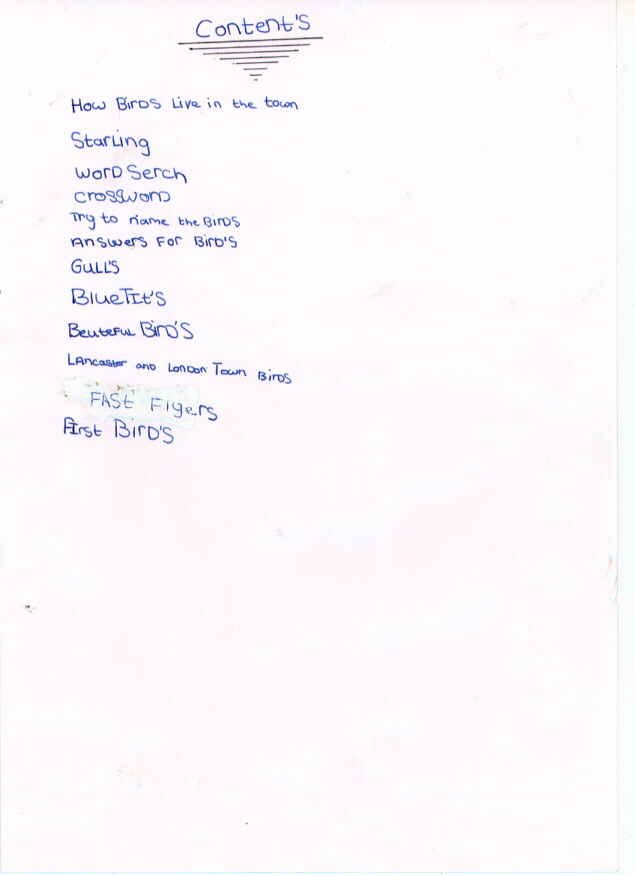 Content'S
How BirDS Live in the town
Starling
WorD Serch
CrossWorD
Try to name the BirDS
Answers For BirD'S
GULL'S
BlueTit'S
Beuteful BirD'S
Lancaster and LonDon Town BirDS
FASt Flyers
First BirD'S